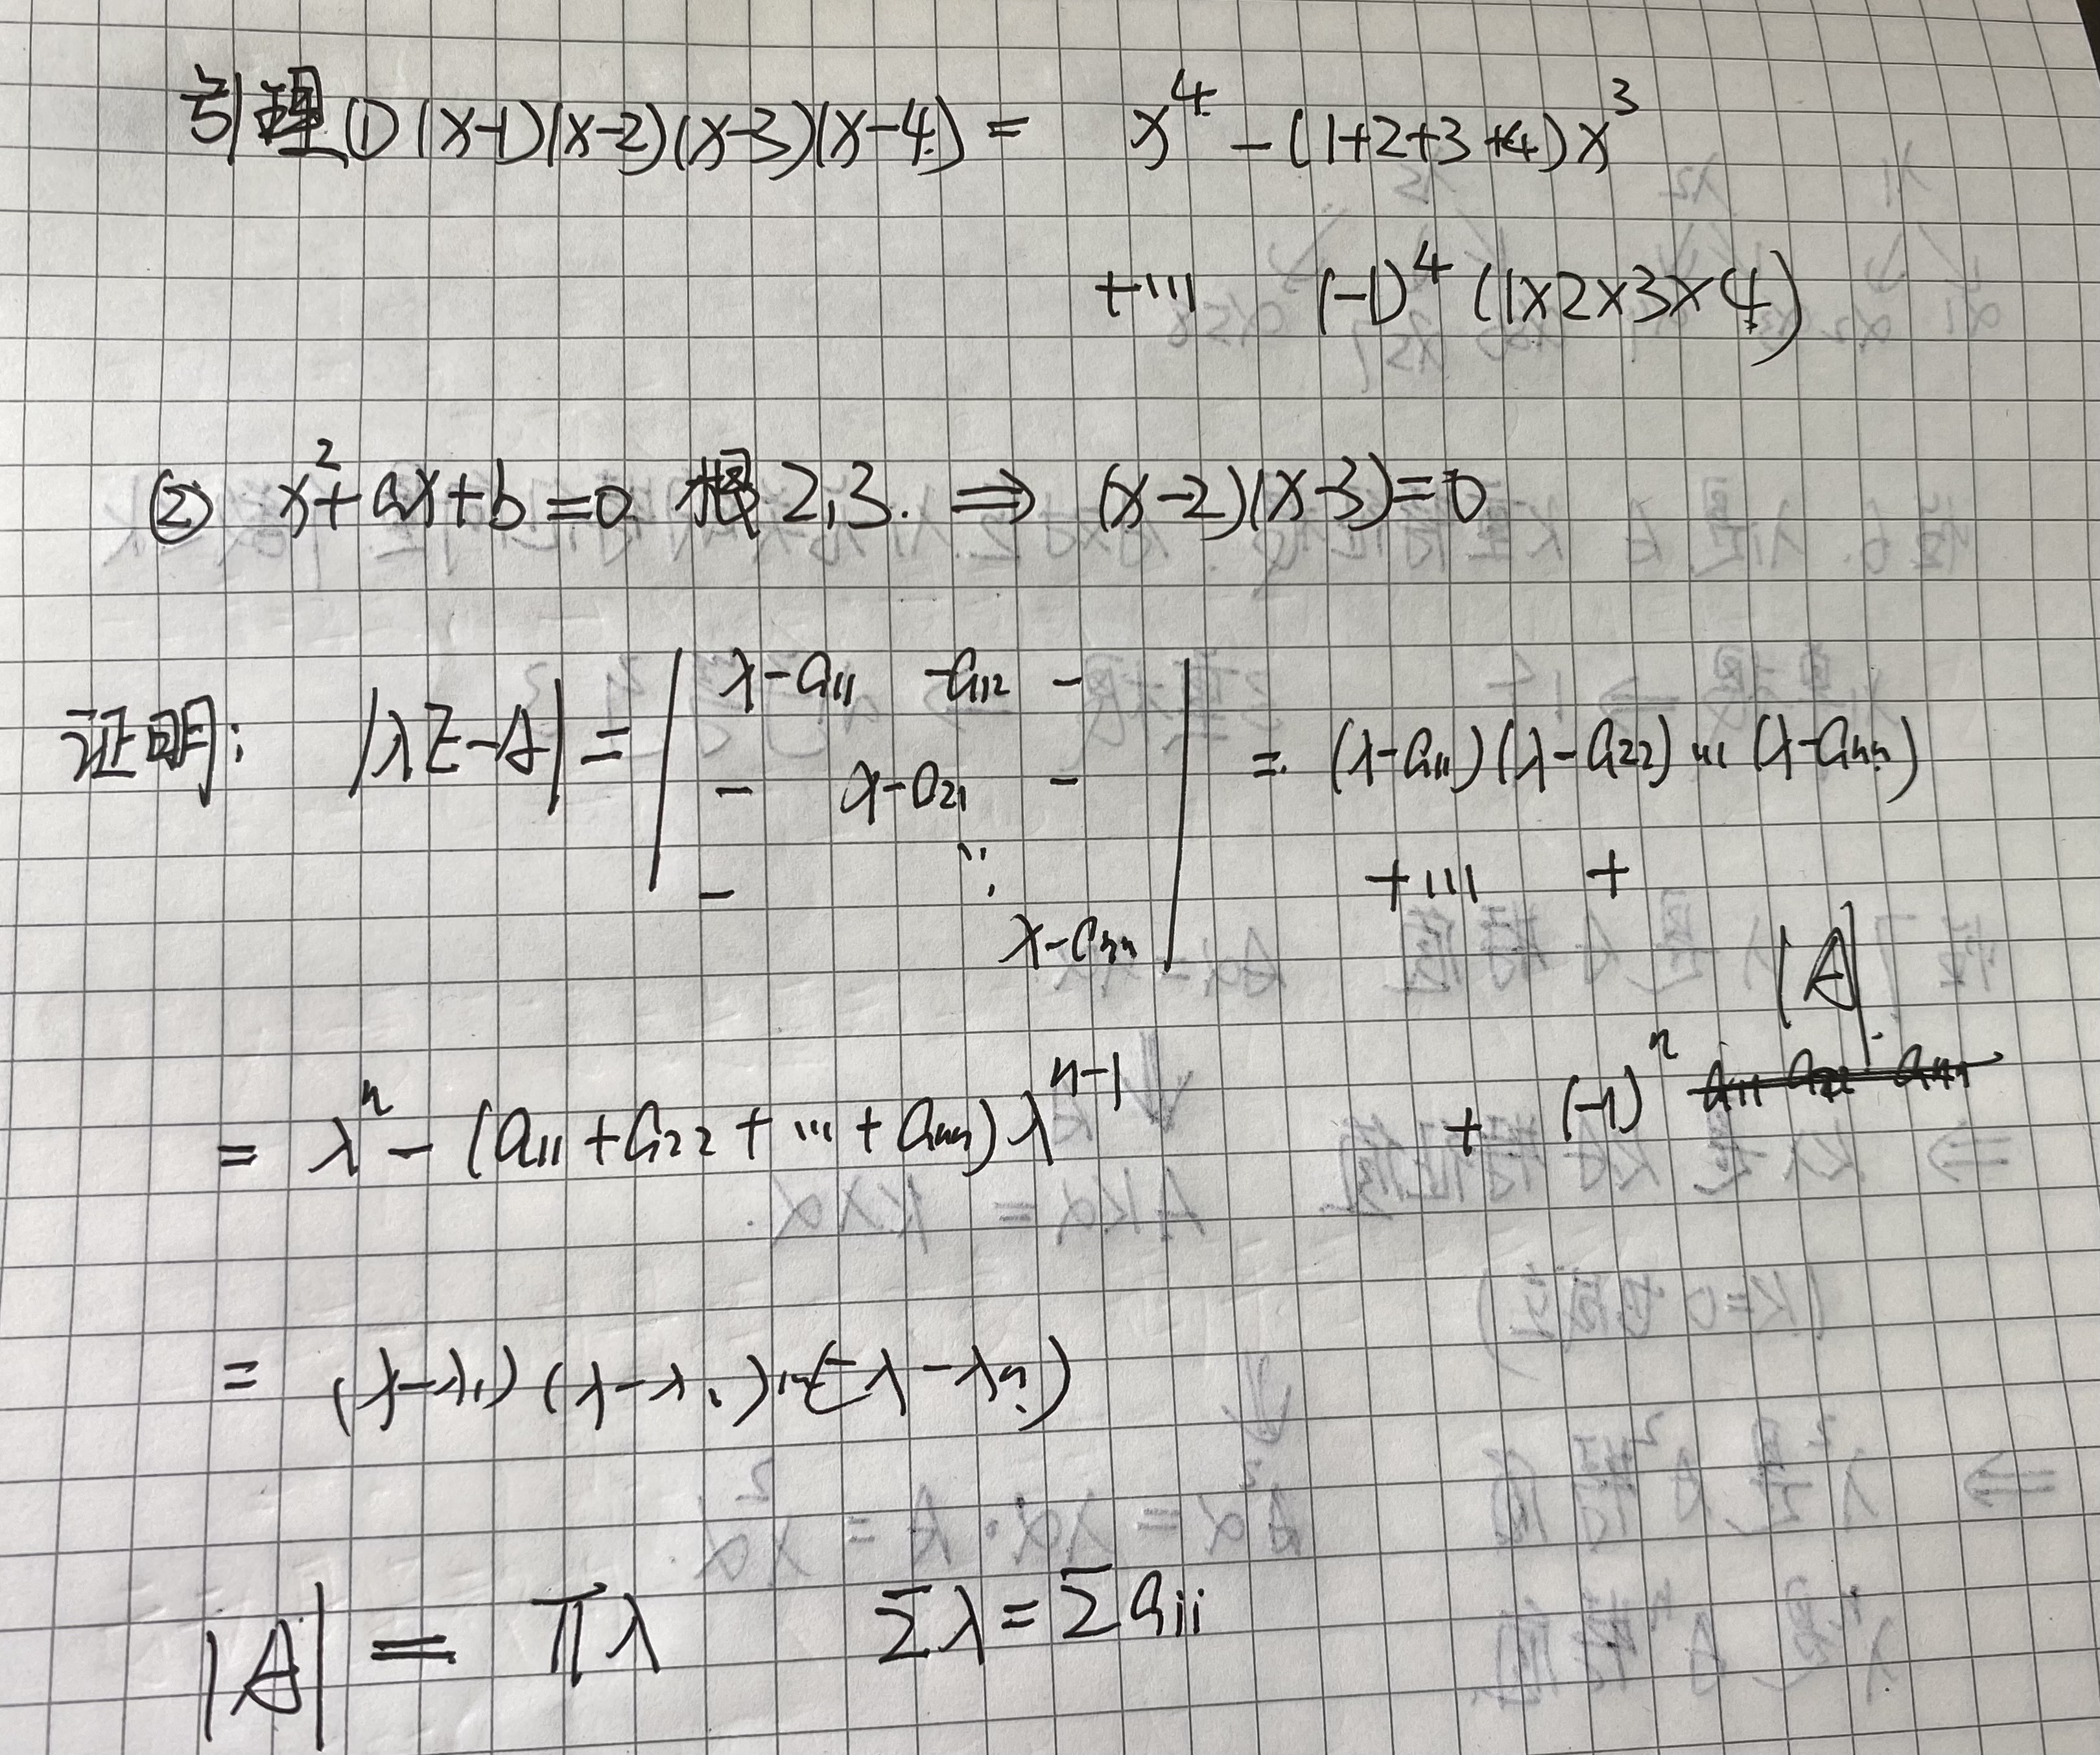 引理 ① (x-1)(x-2)(x-3)(x-4) = x⁴ - (1+2+3+4)x³
+··· (-1)⁴ (1×2×3×4)
② x²+ax+b=0 根 2,3. ⇒ (x-2)(x-3)=0
证明: |λE-A| = | λ-a₁₁ -a₁₂ - | = (λ-a₁₁)(λ-a₂₂)···(λ-aₙₙ)
- λ-a₂₁ -
- ⋱ +··· +
λ-aₙₙ
|A|
= λⁿ - (a₁₁+a₂₂+···+aₙₙ)λⁿ⁻¹ + (-1)ⁿ a₁₁ a₂₂ aₙₙ
= (λ-λ₁)(λ-λ₁)···(λ-λₙ)
|A| = πλ Σλ = Σaᵢᵢ